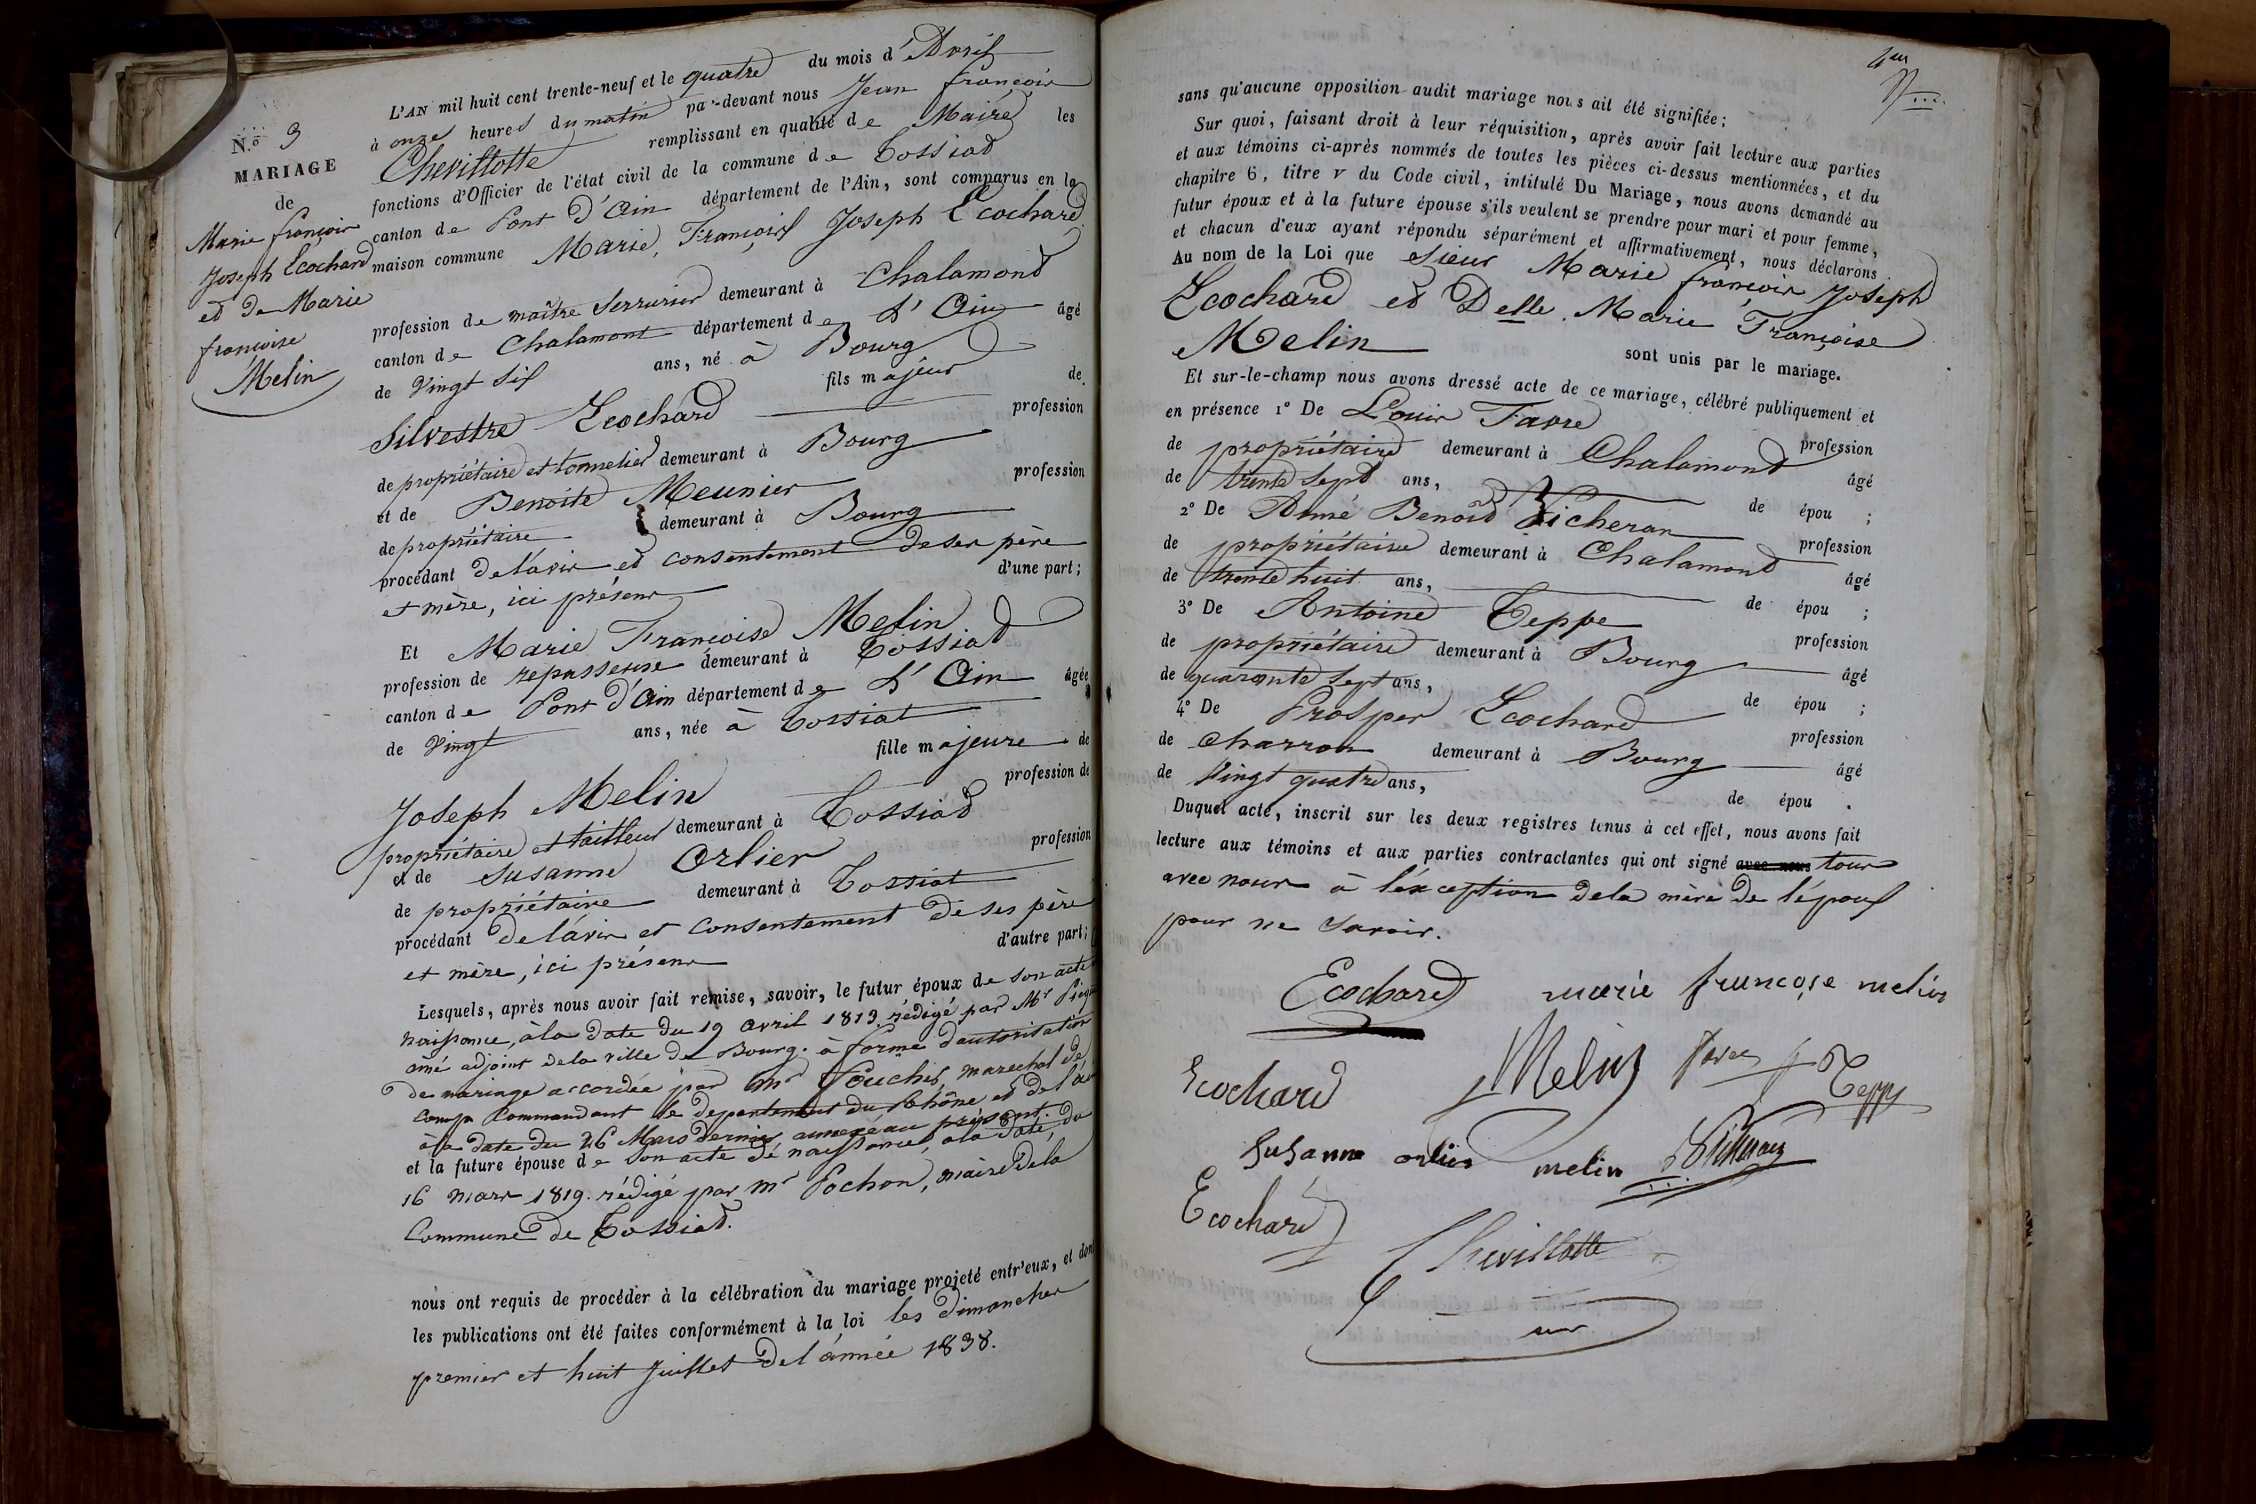 N.º 3
MARIAGE
de
Marie françois
Joseph Ecochard
et de Marie
françoise
Melin
L'AN mil huit cent trente-neuf et le quatre du mois d'Avril
à onze heures du matin par-devant nous Jean françois
Chevillotte remplissant en qualité de Maire les
fonctions d'Officier de l'état civil de la commune de Tossiat
canton de Pont d'Ain département de l'Ain, sont comparus en la
maison commune Marie, François Joseph Ecochard
profession de maître Serrurier demeurant à Chalamond
canton de Chalamont département de l'Ain âgé
de Vingt six ans, né à Bourg
fils majeur de
Silvestre Ecochard profession
de propriétaire et tonnelier demeurant à Bourg
et de Benoite Meunier profession
de propriétaire demeurant à Bourg
procédant de l'avis et consentement de ses père
et mère, ici présens d'une part;
Et Marie Françoise Melin
profession de repasseuse demeurant à Tossiat
canton de Pont d'Ain département de l'Ain âgée
de Vingt ans, née à Tossiat
fille majeure de
Joseph Melin profession de
propriétaire et tailleur demeurant à Tossiat
et de Susanne Orlier profession
de propriétaire demeurant à Tossiat
procédant de l'avis et consentement de ses père
et mère, ici présens d'autre part;
Lesquels, après nous avoir fait remise, savoir, le futur époux de son acte
naissance, à la date du 19 avril 1813. rédigé par Mr
ainé adjoint de la ville de Bourg. à forme d'autorisation
de mariage accordée par Mr maréchal de
camp Commandant le departement du Rhône et de l'ain
à la date du 26 Mars dernier annexe au présent.
et la future épouse de son acte de naissance, à la date, du
16 mars 1819. rédigé par mr Pochon, maire de la
Commune de Tossiat.
nous ont requis de procéder à la célébration du mariage projeté entr'eux, et dont
les publications ont été faites conformément à la loi les dimanches
premier et huit Juillet de l'année 1838.
sans qu'aucune opposition audit mariage nous ait été signifiée;
Sur quoi, faisant droit à leur réquisition, après avoir fait lecture aux parties
et aux témoins ci-après nommés de toutes les pièces ci-dessus mentionnées, et du
chapitre 6, titre v du Code civil, intitulé Du Mariage, nous avons demandé au
futur époux et à la future épouse s'ils veulent se prendre pour mari et pour femme,
et chacun d'eux ayant répondu séparément et affirmativement, nous déclarons
Au nom de la Loi que Sieur Marie françois Joseph
Ecochard et Delle. Marie Françoise
Melin sont unis par le mariage.
Et sur-le-champ nous avons dressé acte de ce mariage, célébré publiquement et
en présence 1º De Louis Favre profession
de propriétaire demeurant à Chalamond âgé
de trente sept ans, de épou ;
2º De Aimé Benoid Vicheran profession
de propriétaire demeurant à Chalamond âgé
de trente huit ans, de épou ;
3º De Antoine Teppe profession
de propriétaire demeurant à Bourg âgé
de quarante sept ans, de épou ;
4º De Prosper Ecochard profession
de charron demeurant à Bourg âgé
de Vingt quatre ans, de épou .
Duquel acte, inscrit sur les deux registres tenus à cet effet, nous avons fait
lecture aux témoins et aux parties contractantes qui ont signé avec nous tous
avec nous à l'exception de la mère de l'époux
pour ne savoir.
Ecochard marie françoise melin
Ecochard Melin Favre Teppe
Susanne orlier melin
Ecochard
Chevillotte